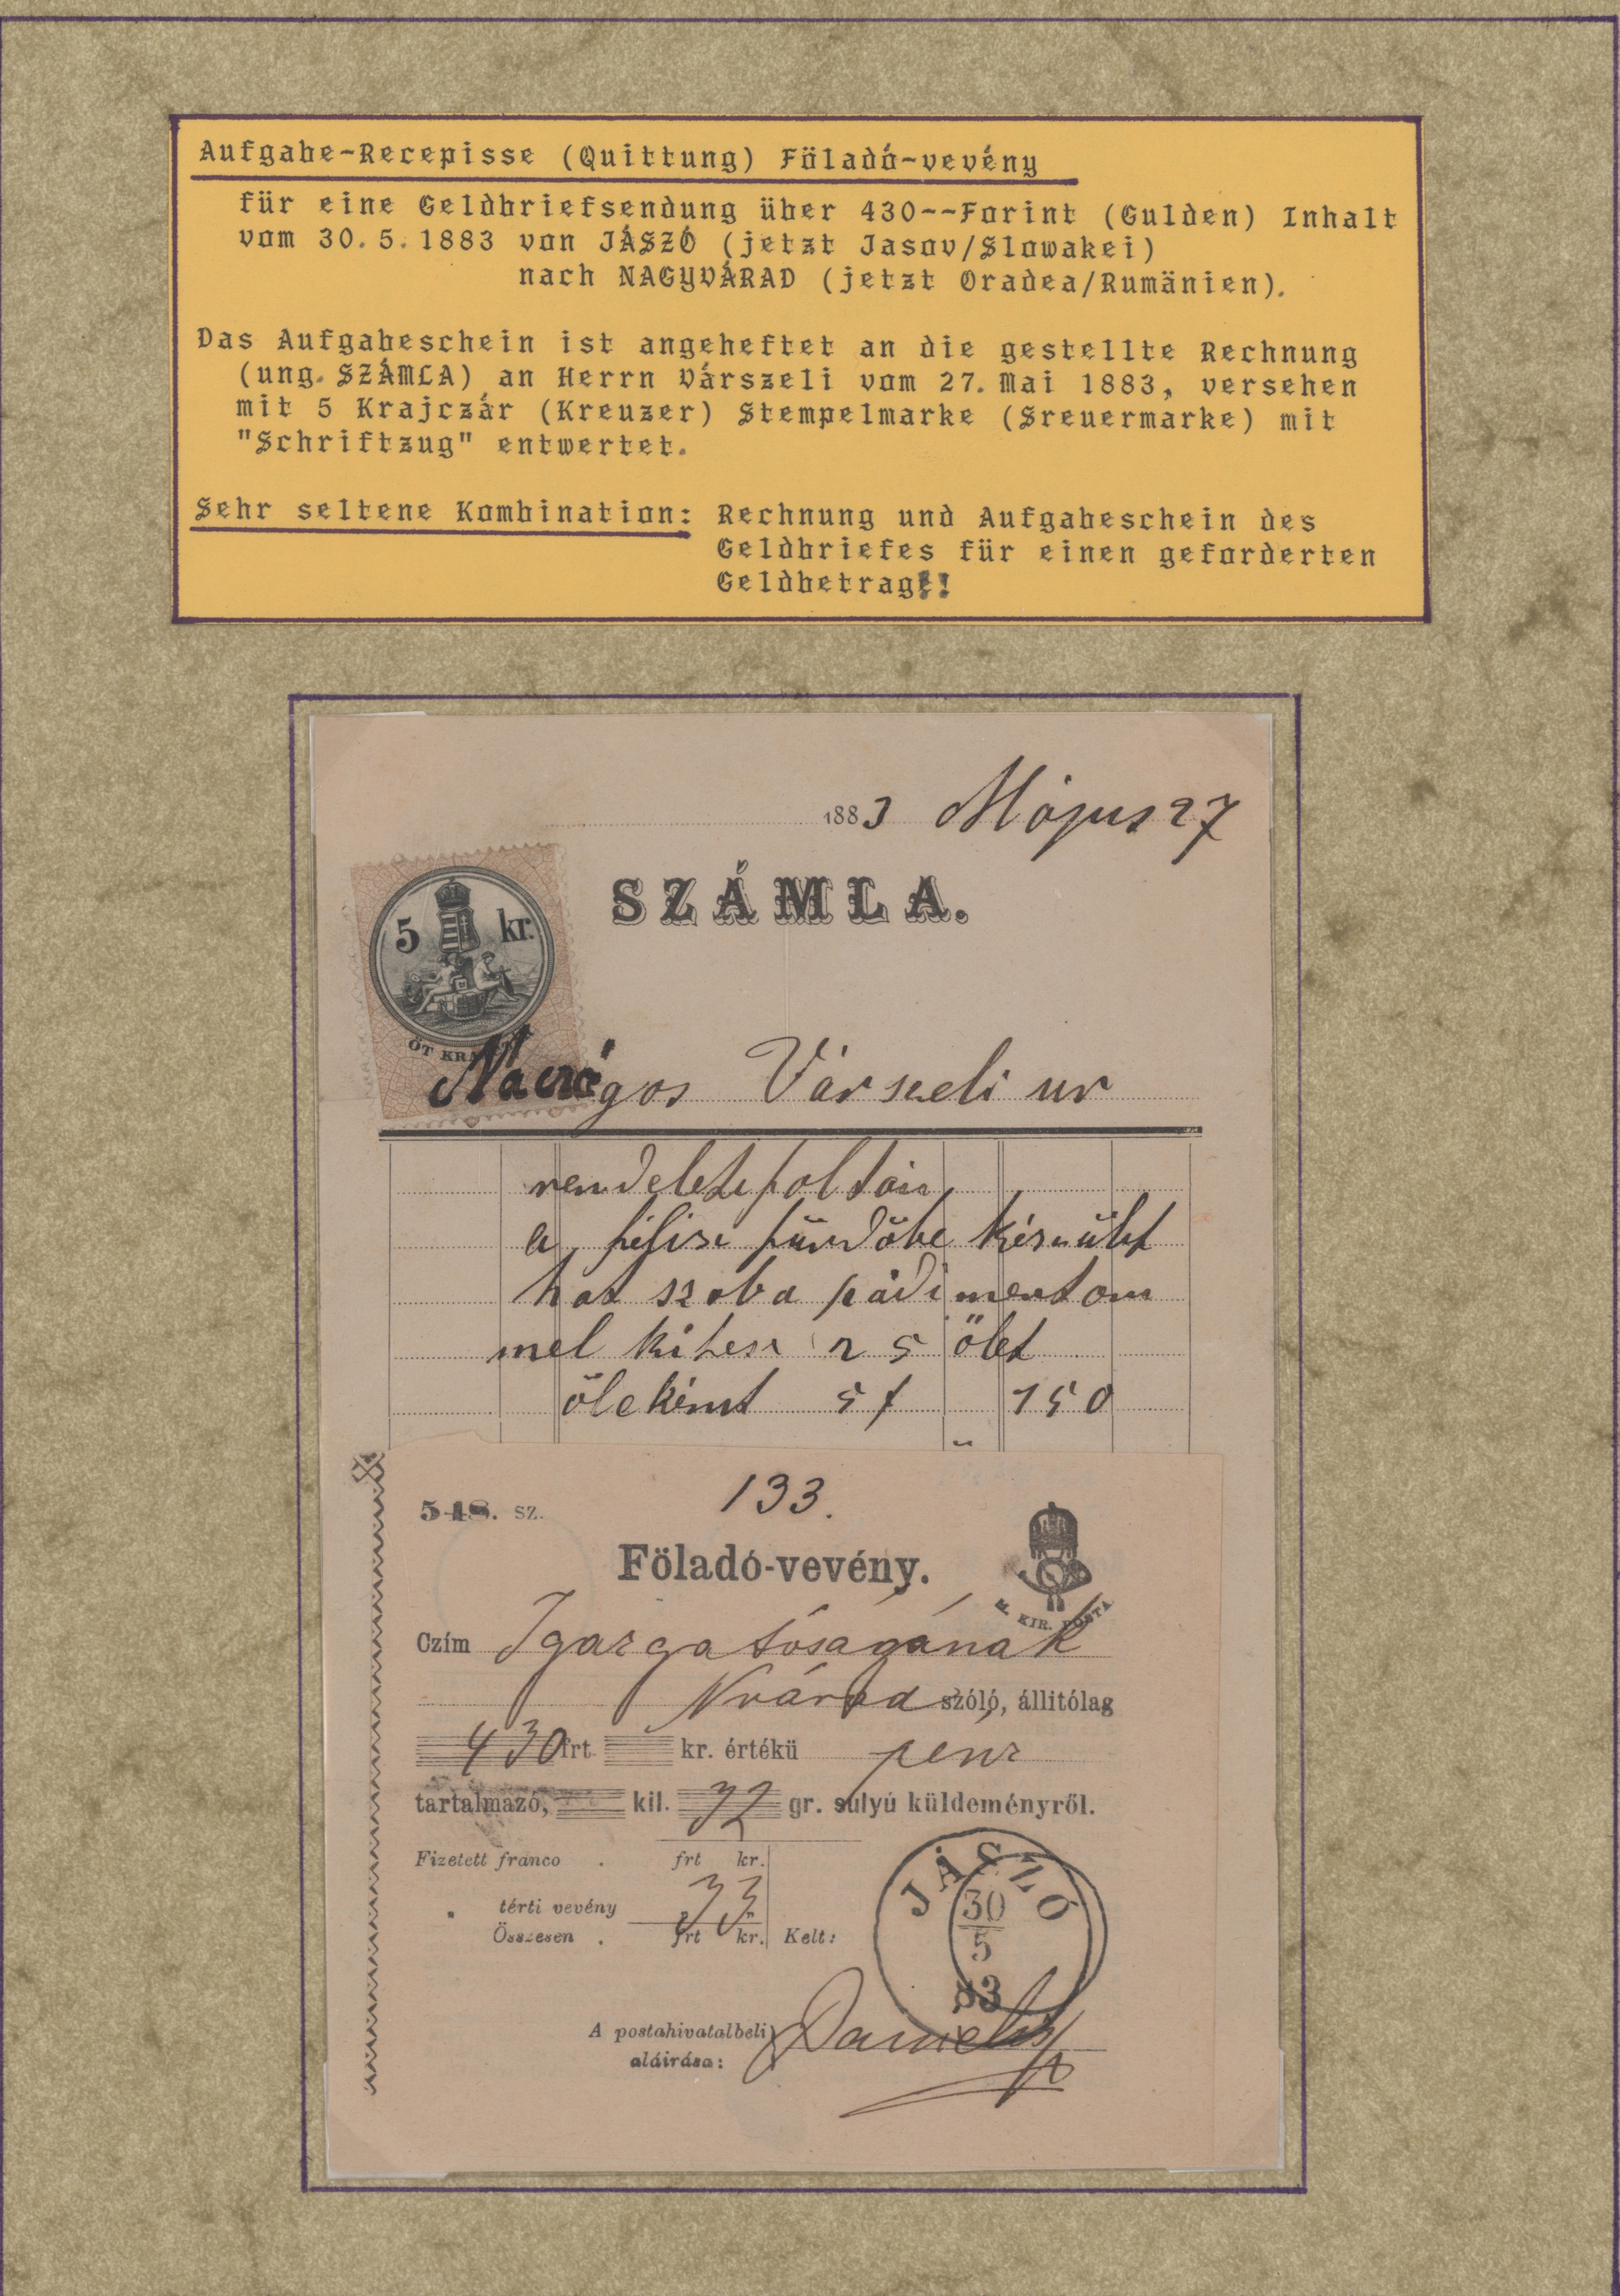 Aufgabe-Recepisse (Quittung) Föladó-vevény
für eine Geldbriefsendung über 430--Forint (Gulden) Inhalt
vom 30.5.1883 von JÁSZÓ (jetzt Jasov/Slowakei)
nach NAGYVÁRAD (jetzt Oradea/Rumänien).
Das Aufgabeschein ist angeheftet an die gestellte Rechnung
(ung. SZÁMLA) an Herrn Várszeli vom 27. Mai 1883, versehen
mit 5 Krajczár (Kreuzer) Stempelmarke (Sreuermarke) mit
"Schriftzug" entwertet.
Sehr seltene Kombination: Rechnung und Aufgabeschein des
Geldbriefes für einen geforderten
Geldbetrag!!
1883 Május 27
SZÁMLA.
5 kr.
ÖT
Várszeli ur
a fürdőbe készült
hat szoba pádimentom
mel kitesz 25 ölet
öleként 5 f 150
133.
548. sz.
Föladó-vevény.
M. KIR. POSTA
Czím Igazgatóságának
Nvárad szóló, állitólag
430 frt kr. értékü pénz
tartalmazó, kil. 32 gr. súlyú küldeményről.
Fizetett franco . frt kr.
" térti vevény 33
Összesen . frt kr. Kelt:
JÁSZÓ
30
5
83
A postahivatalbeli
aláirása: